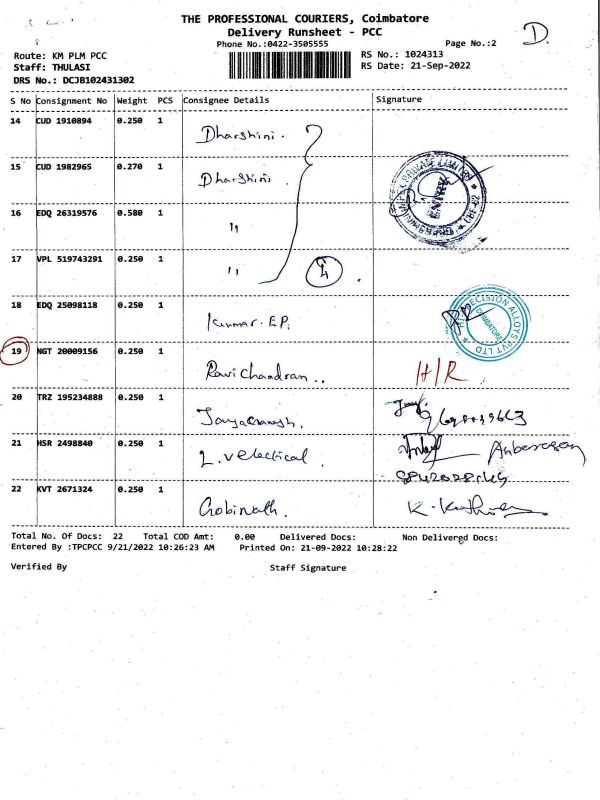 THE PROFESSIONAL COURIERS, Coimbatore
Delivery Runsheet - PCC
Phone No.:0422-3505555
Page No.:2
D
Route: KM PLM PCC
RS No.: 1024313
Staff: THULASI
RS Date: 21-Sep-2022
DRS No.: DCJB102431302
S No Consignment No Weight PCS Consignee Details Signature
14 CUD 1910894 0.250 1 Dharshini.
15 CUD 1982965 0.270 1 Dharshini. ENTRY
16 EDQ 26319576 0.580 1 "
17 VPL 519743291 0.250 1 " 4
18 EDQ 25098118 0.250 1 Kumar. E.P. PRECISION ALLOYS PVT LTD COIMBATORE
19 NGT 20009156 0.250 1 Ravi Chandran.. H/R
20 TRZ 195234888 0.250 1
21 HSR 2498840 0.250 1 L.V electical. Anbarasan
22 KVT 2671324 0.250 1 Gobinath.
Total No. Of Docs: 22 Total COD Amt: 0.00 Delivered Docs: Non Delivered Docs:
Entered By :TPCPCC 9/21/2022 10:26:23 AM Printed On: 21-09-2022 10:28:22
Verified By Staff Signature